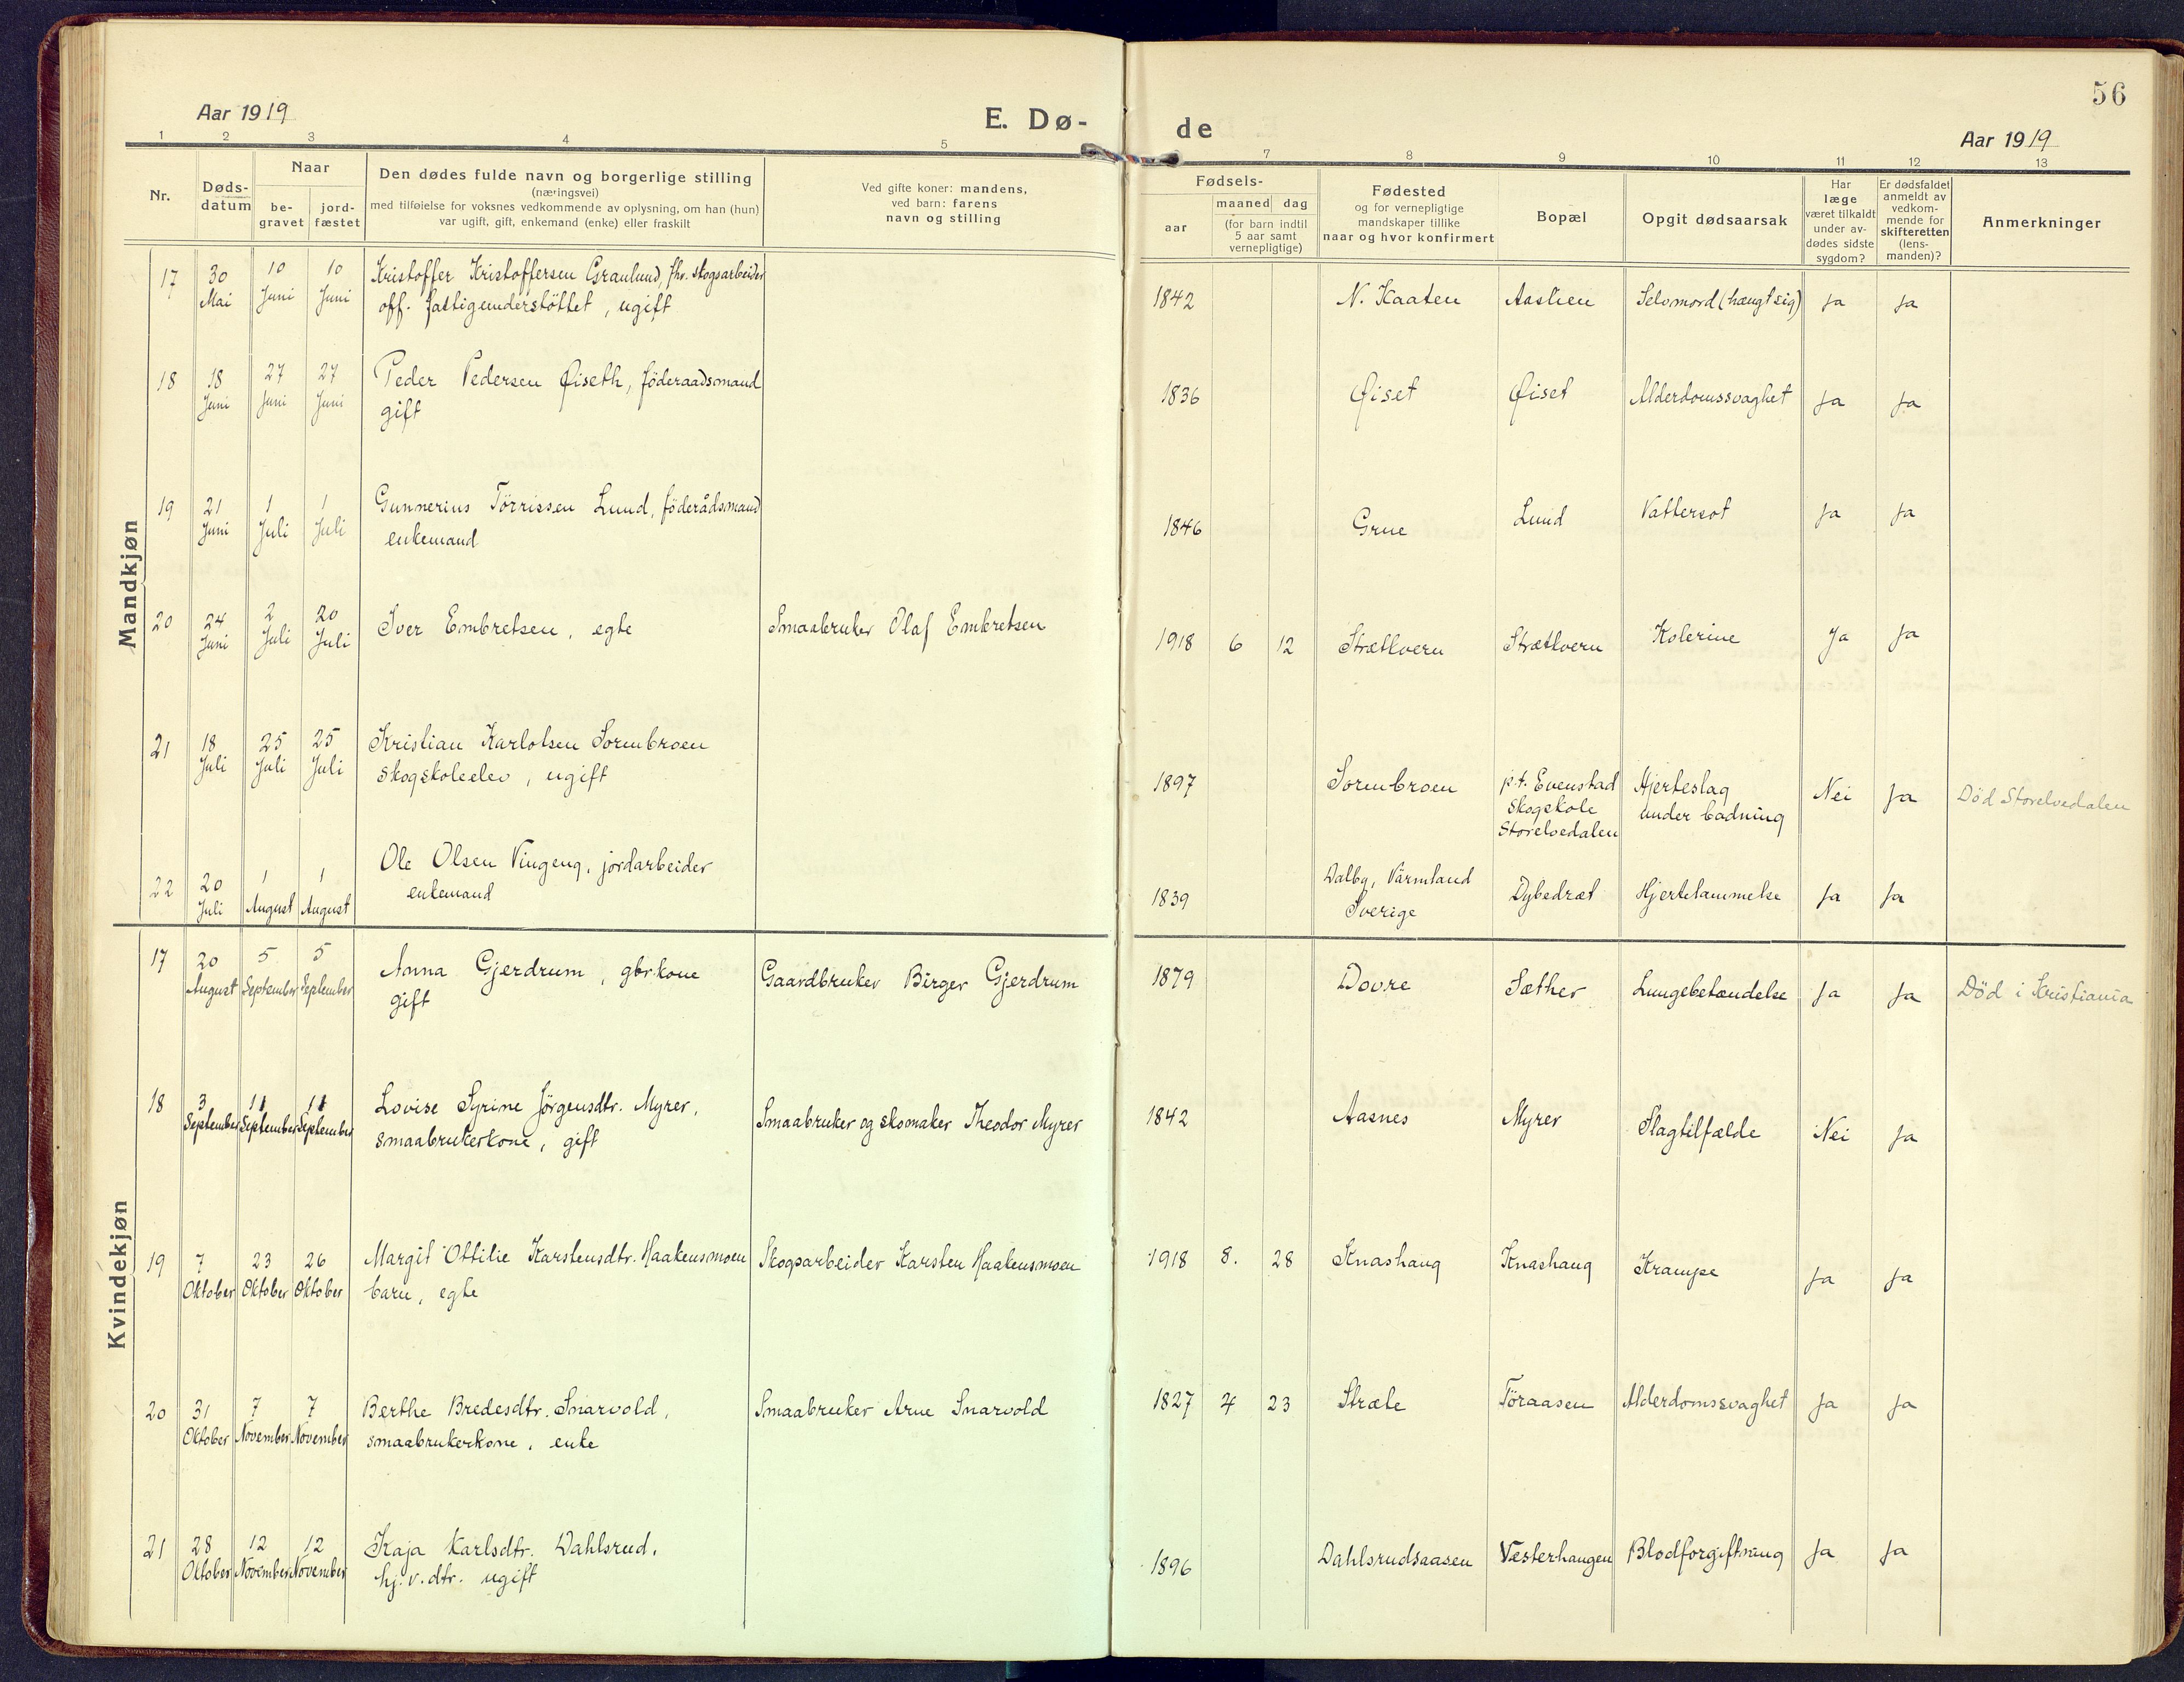 56
Aar 1919
E. Dø-
de
Aar 1919
1 2 3 4 5 7 8 9 10 11 12 13
Nr.
Døds-
datum
Naar
be-
gravet
jord-
fæstet
Den dødes fulde navn og borgerlige stilling
(næringsvei)
med tilføielse for voksnes vedkommende av oplysning, om han (hun)
var ugift, gift, enkemand (enke) eller fraskilt
Ved gifte koner: mandens,
ved barn: farens
navn og stilling
Fødsels-
aar
maaned dag
(for barn indtil
5 aar samt
vernepligtige)
Fødested
og for vernepligtige
mandskaper tillike
naar og hvor konfirmert
Bopæl
Opgit dødsaarsak
Har
læge
været tilkaldt
under av-
dødes sidste
sygdom?
Er dødsfaldet
anmeldt av
vedkom-
mende for
skifteretten
(lens-
manden)?
Anmerkninger
Mandkjøn
17 30 10 10 Kristoffer Kristoffersen Granlund, fhv. skogsarbeider
Mai Juni Juni off. fattigunderstöttet, ugift
1842 N. Kaaten Aaslien Selvmord (hængt sig) Ja Ja
18 18 27 27 Peder Pedersen Øiseth, föderaadsmand
Juni Juni Juni gift
1836 Øiset Øiset Alderdomssvaghet Ja Ja
19 21 1 1 Gunnerius Törrissen Lund, föderådsmand
Juni Juli Juli enkemand
1846 Grue Lund Vattersot Ja Ja
20 24 2 20 Iver Embretsen, egte Smaabruker Olaf Embretsen
Juni Juli Juli
1918 6 12 Strætkvern Strætkvern Kolerine Ja Ja
21 18 25 25 Kristian Karlolsen Sormbroen
Juli Juli Juli skogskoleelev, ugift
1897 Sormbroen p.t. Evenstad Hjerteslag Nei Ja Död Storelvedalen
Skogskole under badning
Storelvedalen
22 20 1 1 Ole Olsen Vingeng, jordarbeider
Juli August August enkemand
1839 Dalby, Värmland Dybedræt Hjertelammelse Ja Ja
Sverige
Kvindekjøn
17 20 5 5 Anna Gjerdrum, gbr.kone Gaardbruker Birger Gjerdrum
August September September gift
1879 Dovre Sæther Lungebetændelse Ja Ja Död i Kristiania
18 3 11 11 Lovise Syrine Jörgensdtr. Myrer, Smaabruker og skomaker Theodor Myrer
September September September smaabrukerkone, gift
1842 Aasnes Myrer Slagtilfælde Nei Ja
19 7 23 26 Margit Ottilie Karstensdtr. Haakensmoen Skogsarbeider Karsten Haakensmoen
Oktober Oktober Oktober barn, egte
1918 8. 28 Knashaug Knashaug Krampe Ja Ja
20 31 7 7 Berthe Bredesdtr. Snarvold, Smaabruker Arne Snarvold
Oktober November November smaabrukerkone, enke
1827 4 23 Stræte Töraasen Alderdomssvaghet Ja Ja
21 28 12 12 Kaja Karlsdtr. Dahlsrud,
Oktober November November hj.v.dtr. ugift
1896 Dahlsrudsaasen Vesterhaugen Blodforgiftning Ja Ja